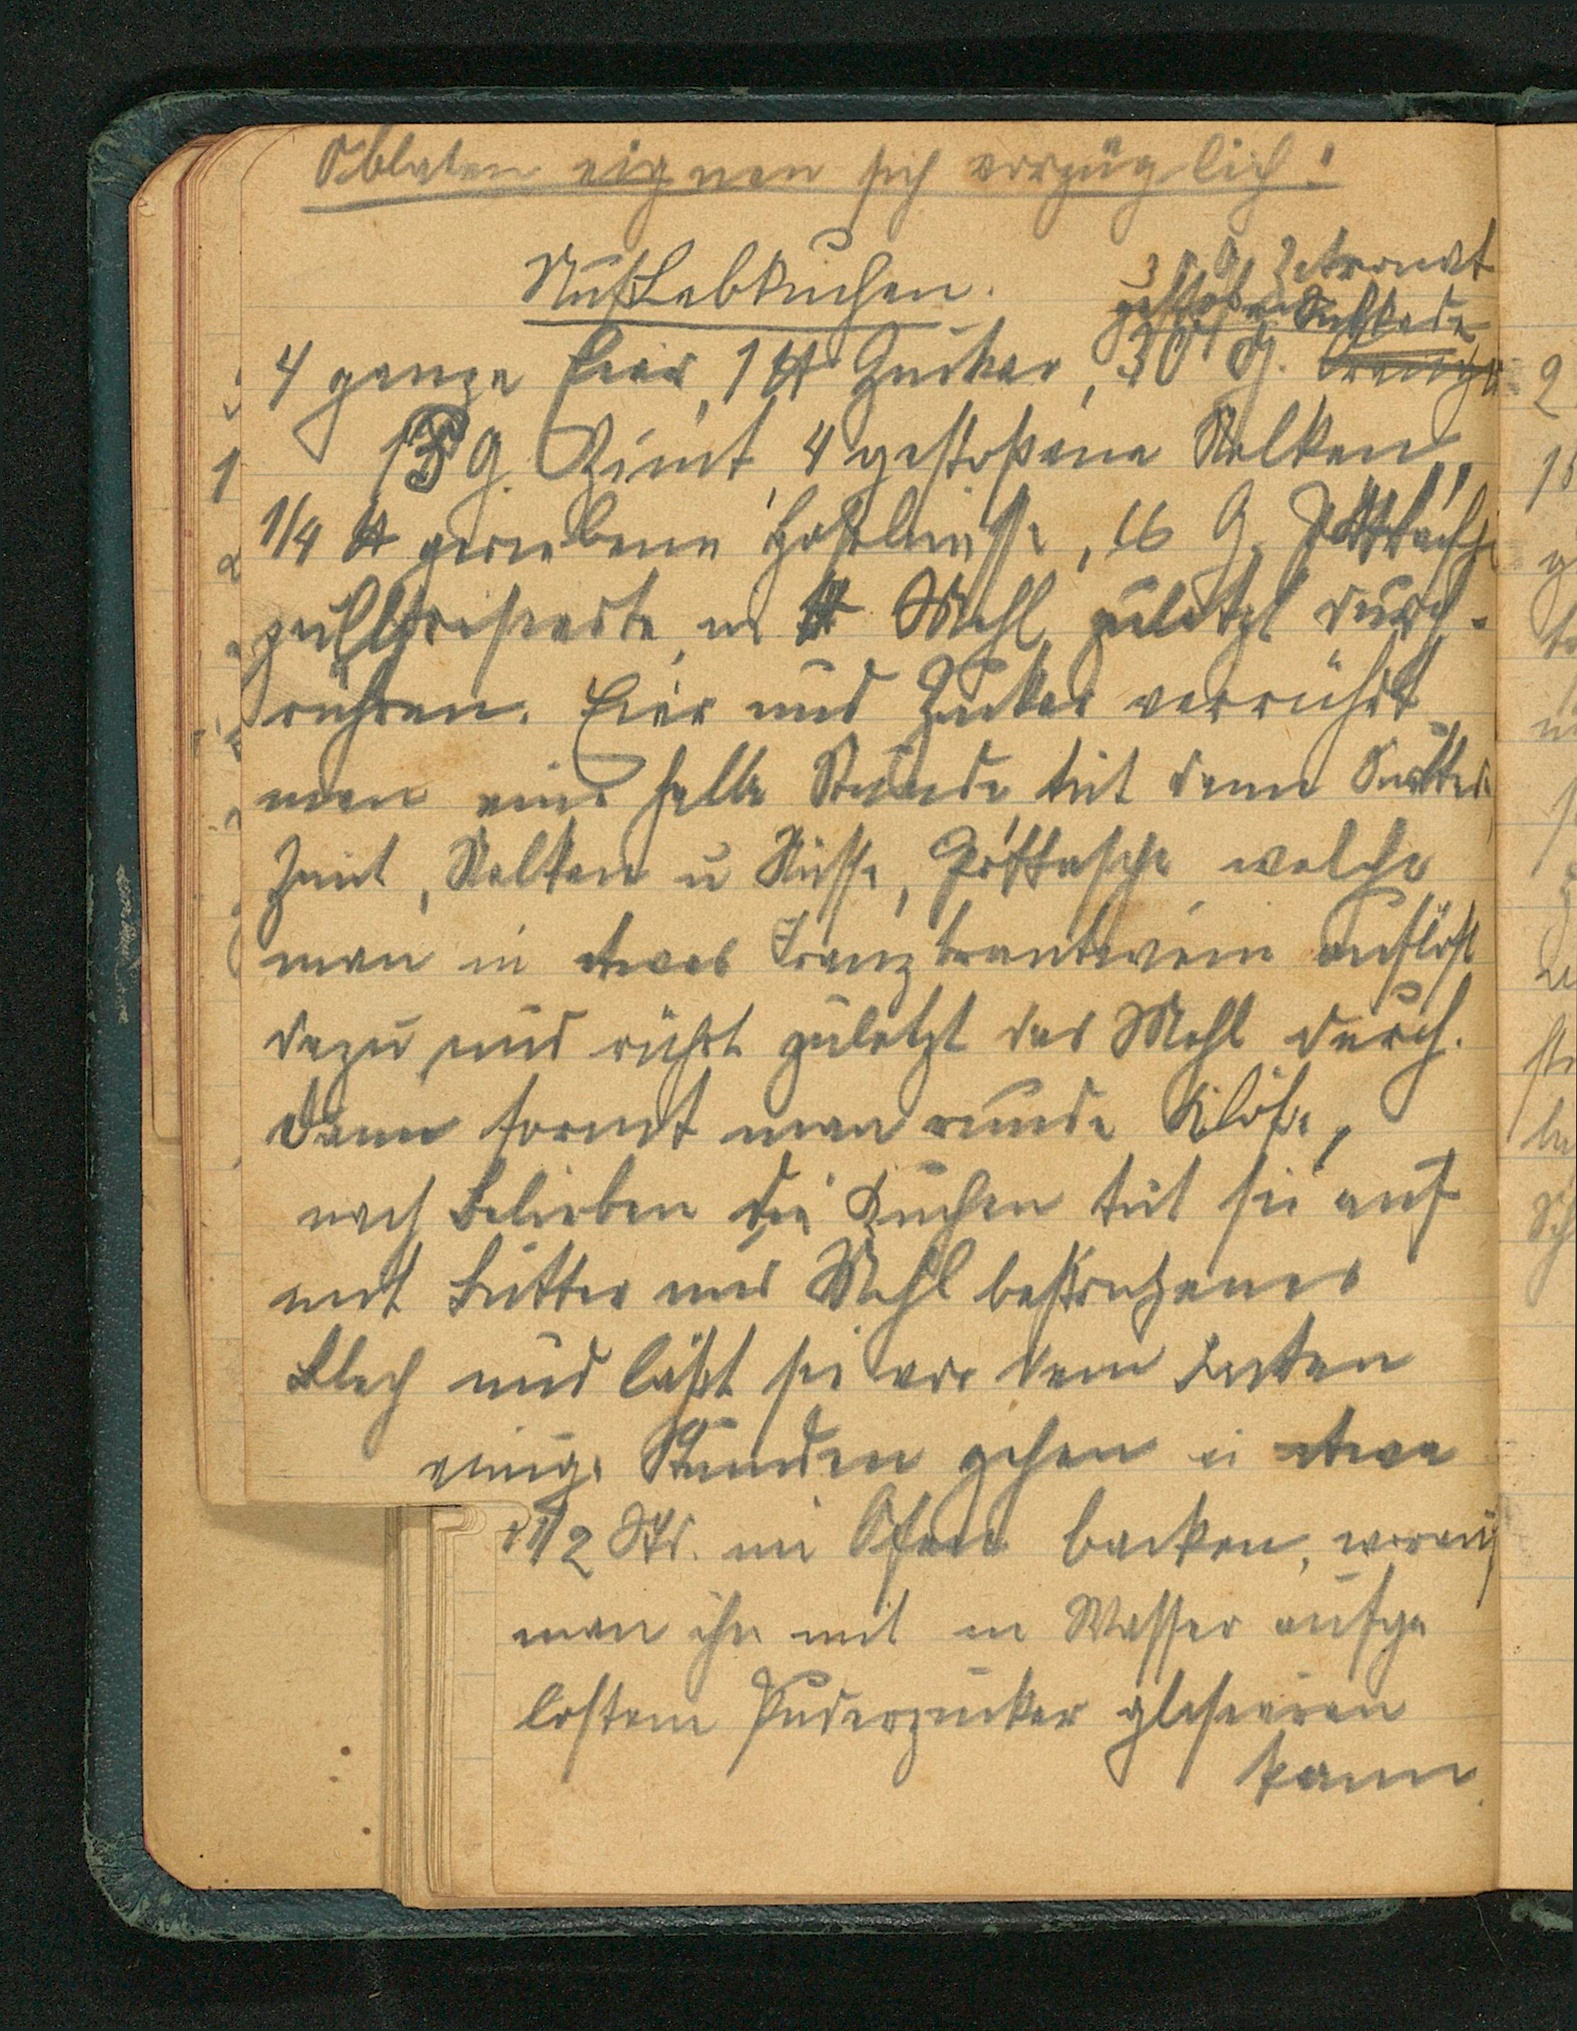 Oblaten eignen sich vorzüglich!
Nußlebkuchen.
30 g Zitronat
gestoßen Sukkade
4 ganze Eier, 1 ℔ Zucker, 30 g.
15 g. Zimt, 4 gestoßene Nelken,
1/4 ℔ geriebene Haselnüsse, 16 g. Pottasche
℔ Mehl zuletzt durch-
rühren. Eier und Zucker verrührt
man eine halbe Stunde tut dann Sukkade
Zimt, Nelken u Nüsse, Pottasche welche
man in etwas Franzbranntwein auflöst
dazu und rührt zuletzt das Mehl durch.
Dann formt man runde Klöße,
nach Belieben die Kuchen tut sie auf
mit Butter und Mehl bestrichenes
Blech und läßt sie vor dem Backen
einige Stunden gehen u etwa
1/2 Std. im Ofen backen, worauf
man ihn mit in Wasser aufge
lostem Puderzucker glasieren
kann.